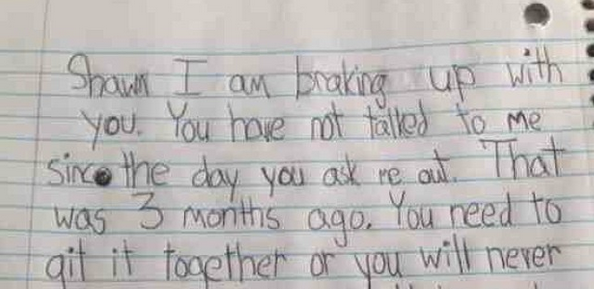 Shawn I am braking up with
you. You have not talked to me
since the day you ask me out. That
was 3 months ago. You need to
git it together or you will never